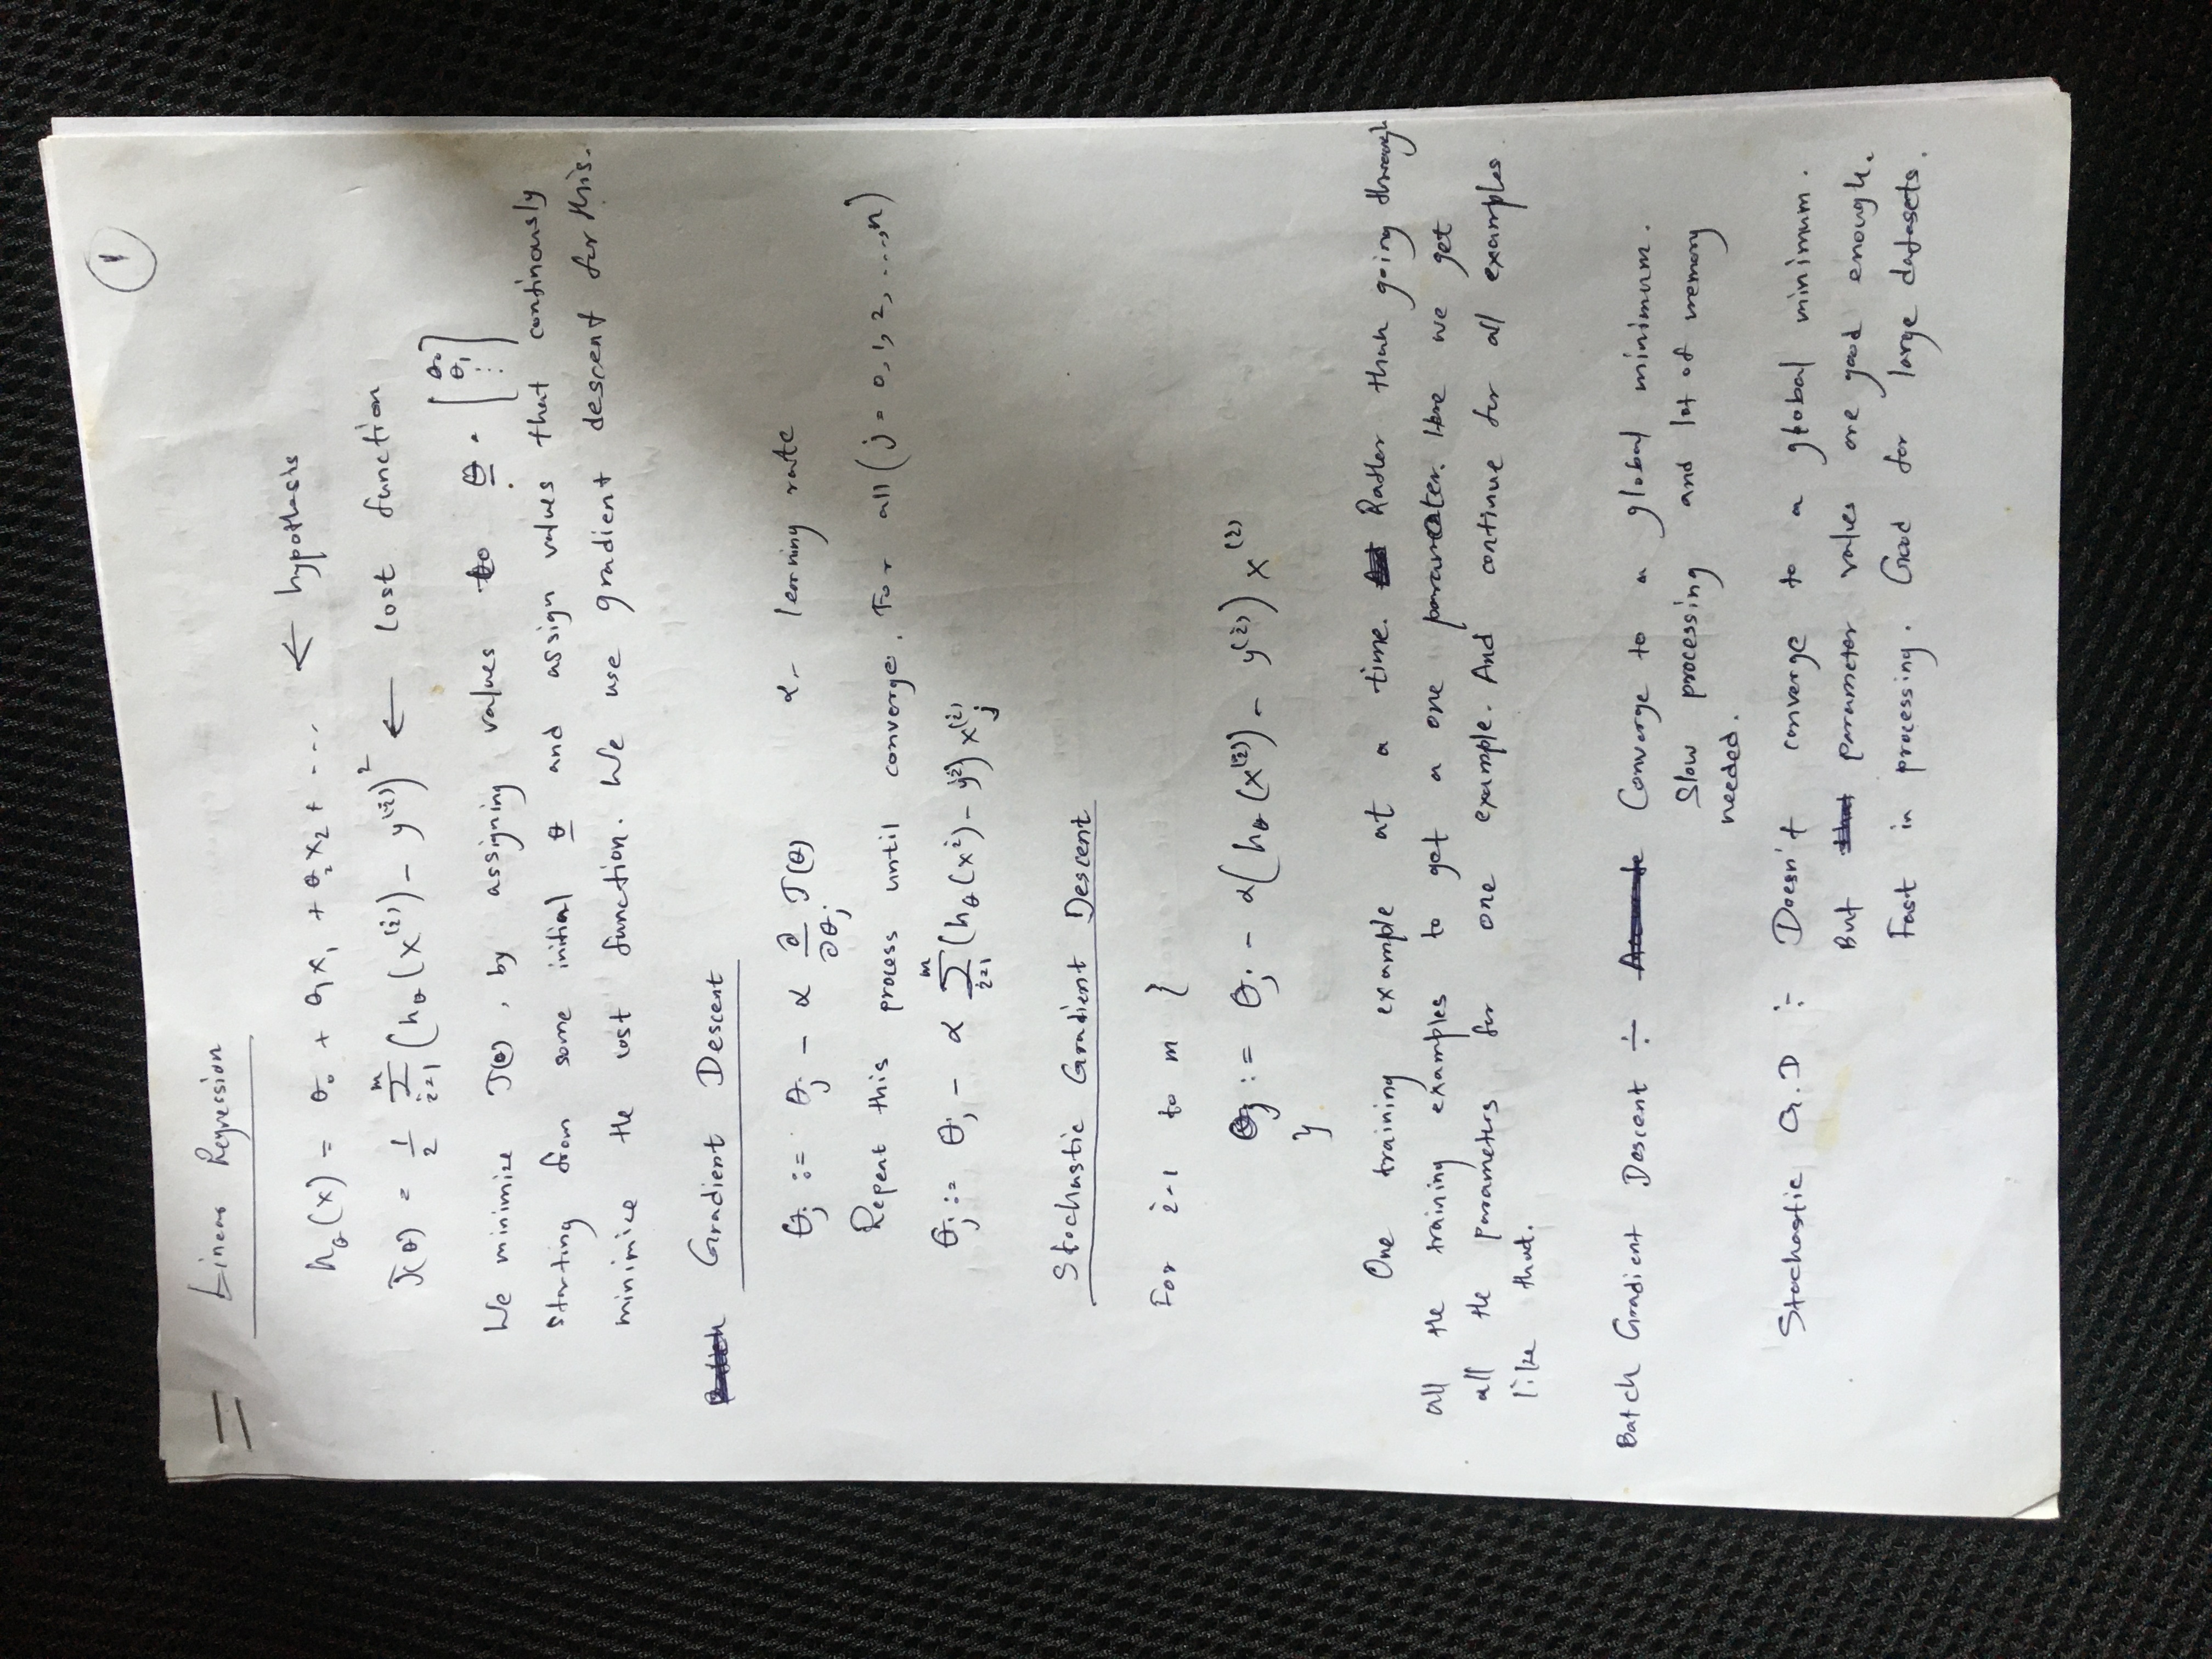 1
Linear Regression
hθ(x) = θ0 + θ1x1 + θ2x2 + ... ← hypothesis
J(θ) = 1/2 Σ_{i=1}^{m} (hθ(x^(i)) - y^(i))^2 ← cost function
We minimize J(θ), by assigning values to θ = [θ0 θ1 ⋮]
starting from some initial θ and assign values that continously
minimize the cost function. We use gradient descent for this.
Gradient Descent
θj := θj - α ∂/∂θj J(θ) α - learning rate
Repeat this process until converge. For all (j = 0, 1, 2, ..., n)
θj := θj - α Σ_{i=1}^{m} (hθ(x^i) - y^i) xj^(i)
Stochastic Gradient Descent
For i=1 to m {
θj := θj - α(hθ(x^(i)) - y^(i)) x^(i)
}
One training example at a time. Rather than going through
all the training examples to get a one parameter. Here we get
all the parameters for one example. And continue for all examples
like that.
Batch Gradient Descent :- Converge to a global minimum.
Slow processing and lot of memory
needed.
Stochastic G.D :- Doesn't converge to a global minimum.
But parameter values are good enough.
Fast in processing. Good for large datasets.